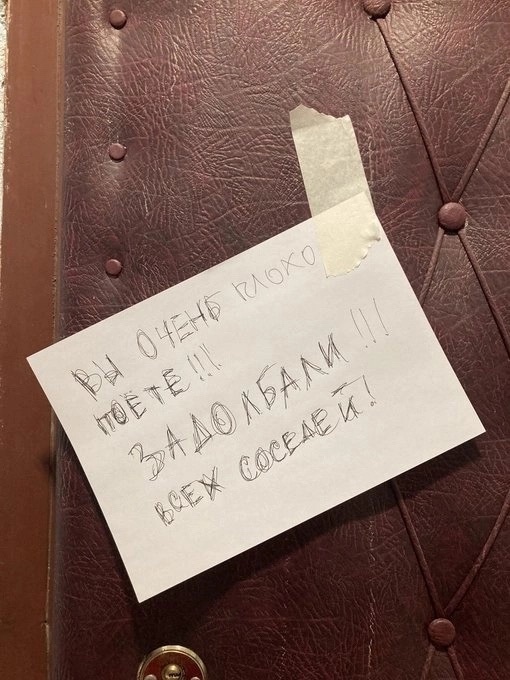 ВЫ ОЧЕНЬ ПЛОХО
ПОЁТЕ!!!
ЗАДОЛБАЛИ!!!
ВСЕХ СОСЕДЕЙ!